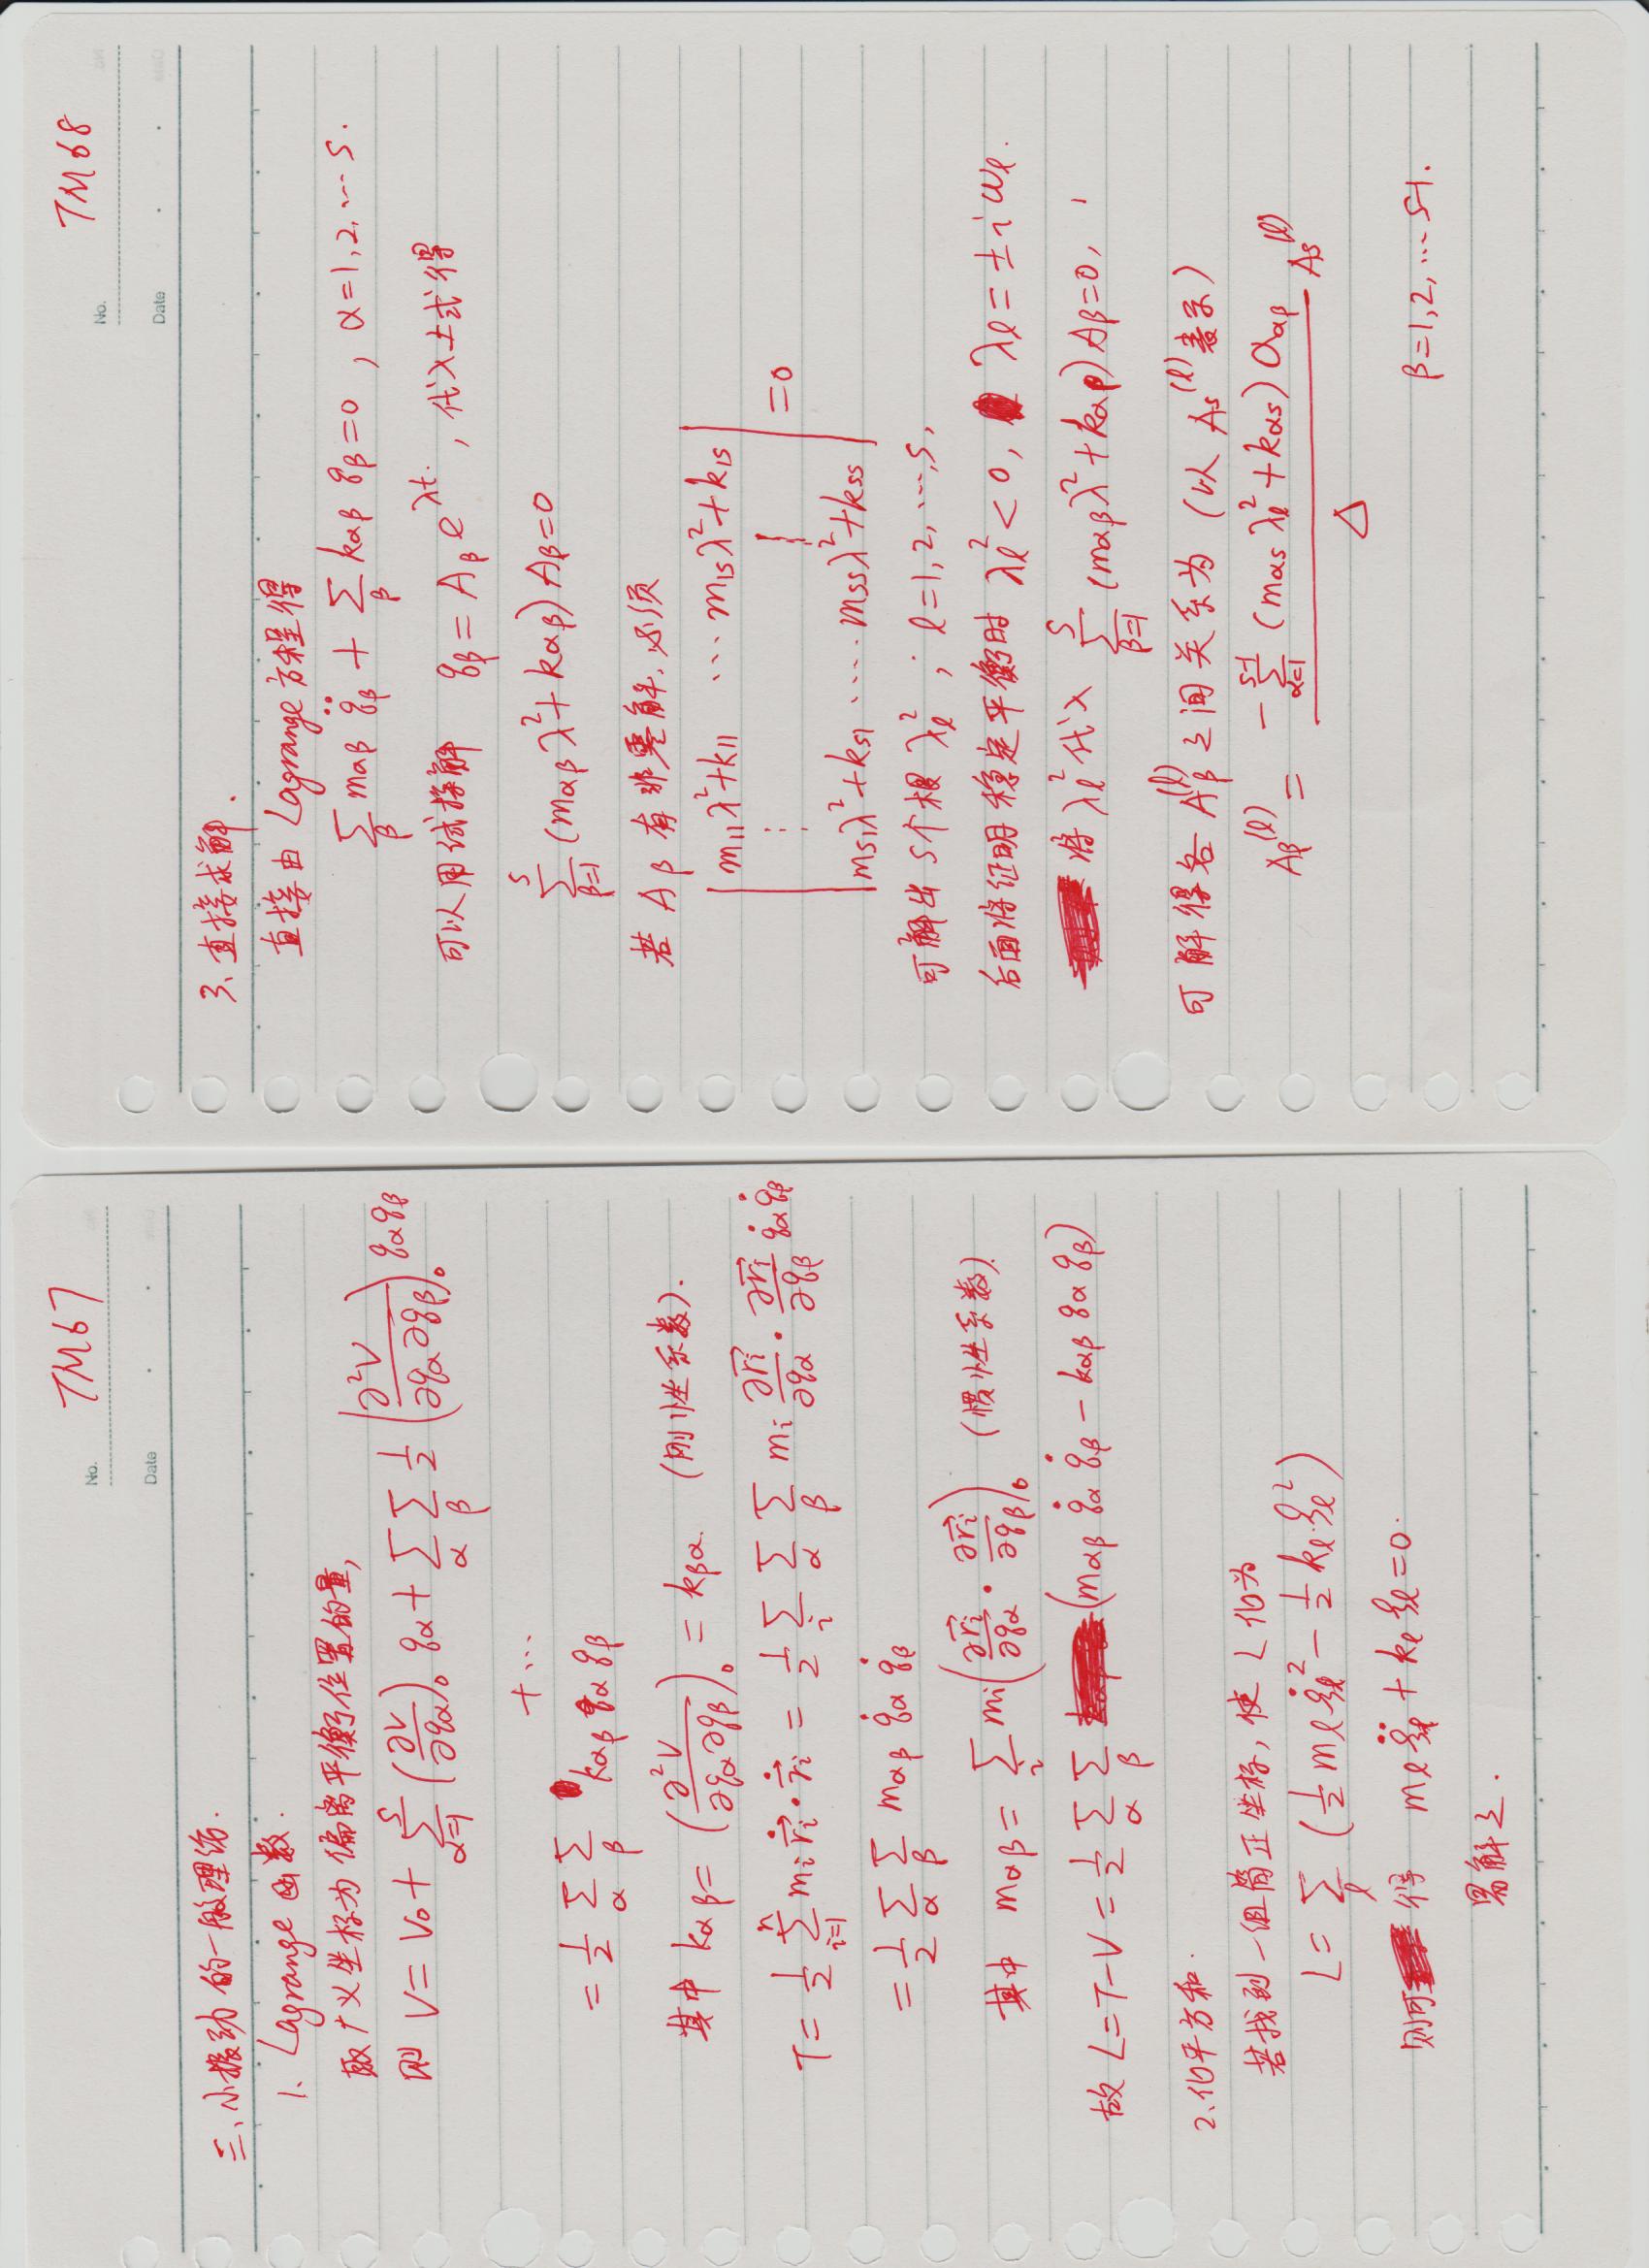 No. TM67
Date
三、小振动的一般理论.
1、Lagrange 函数.
取广义坐标为偏离平衡位置的量,
则 V = V₀ + \sum_{α=1}^{S} (\frac{∂V}{∂q_α})_0 q_α + \sum_α \sum_β \frac{1}{2} (\frac{∂^2V}{∂q_α ∂q_β})_0 q_α q_β
+ ···
= \frac{1}{2} \sum_α \sum_β k_{αβ} q_α q_β
其中 k_{αβ} = (\frac{∂^2V}{∂q_α ∂q_β})_0 = k_{βα}. (刚性系数).
T = \frac{1}{2} \sum_{i=1}^{n} m_i \dot{\vec{r_i}} · \dot{\vec{r_i}} = \frac{1}{2} \sum_i \sum_α \sum_β m_i \frac{∂\vec{r_i}}{∂q_α} · \frac{∂\vec{r_i}}{∂q_β} \dot{q}_α \dot{q}_β
= \frac{1}{2} \sum_α \sum_β m_{αβ} \dot{q}_α \dot{q}_β
其中 m_{αβ} = \sum_i m_i (\frac{∂\vec{r_i}}{∂q_α} · \frac{∂\vec{r_i}}{∂q_β})_0 (惯性系数).
故 L = T - V = \frac{1}{2} \sum_α \sum_β (m_{αβ} \dot{q}_α \dot{q}_β - k_{αβ} q_α q_β)
2、化平方和.
若找到一组简正坐标, 使 L 化为
L = \sum_l (\frac{1}{2} m_l \dot{ξ}_l^2 - \frac{1}{2} k_l ξ_l^2)
则可得 m_l \ddot{ξ}_l + k_l ξ_l = 0.
易解之.
No. TM68
Date
3、直接求解.
直接由 Lagrange 方程得
\sum_β m_{αβ} \ddot{q}_β + \sum_β k_{αβ} q_β = 0 , α = 1, 2, ··· S.
可以用试探解 q_β = A_β e^{λt}. , 代入上式得
\sum_{β=1}^{S} (m_{αβ} λ^2 + k_{αβ}) A_β = 0
若 A_β 有非零解, 必须
| m_{11}λ^2 + k_{11} ··· m_{1S}λ^2 + k_{1S} |
⋮ ⋮ = 0
| m_{S1}λ^2 + k_{S1} ····· m_{SS}λ^2 + k_{SS} |
可解出 S 个根 λ_l^2 ; l = 1, 2, ···, S,
后面将证明稳定平衡时 λ_l^2 < 0, λ_l = ± i ω_l.
将 λ_l^2 代入 \sum_{β=1}^{S} (m_{αβ} λ^2 + k_{αβ}) A_β = 0,
可解得各 A_β^{(l)} 之间关系为 (以 A_S^{(l)} 表示)
A_β^{(l)} = \frac{-\sum_{α=1}^{S-1} (m_{αS} λ_l^2 + k_{αS}) Q_{αβ}}{Δ} A_S^{(l)}
β = 1, 2, ··· S-1.